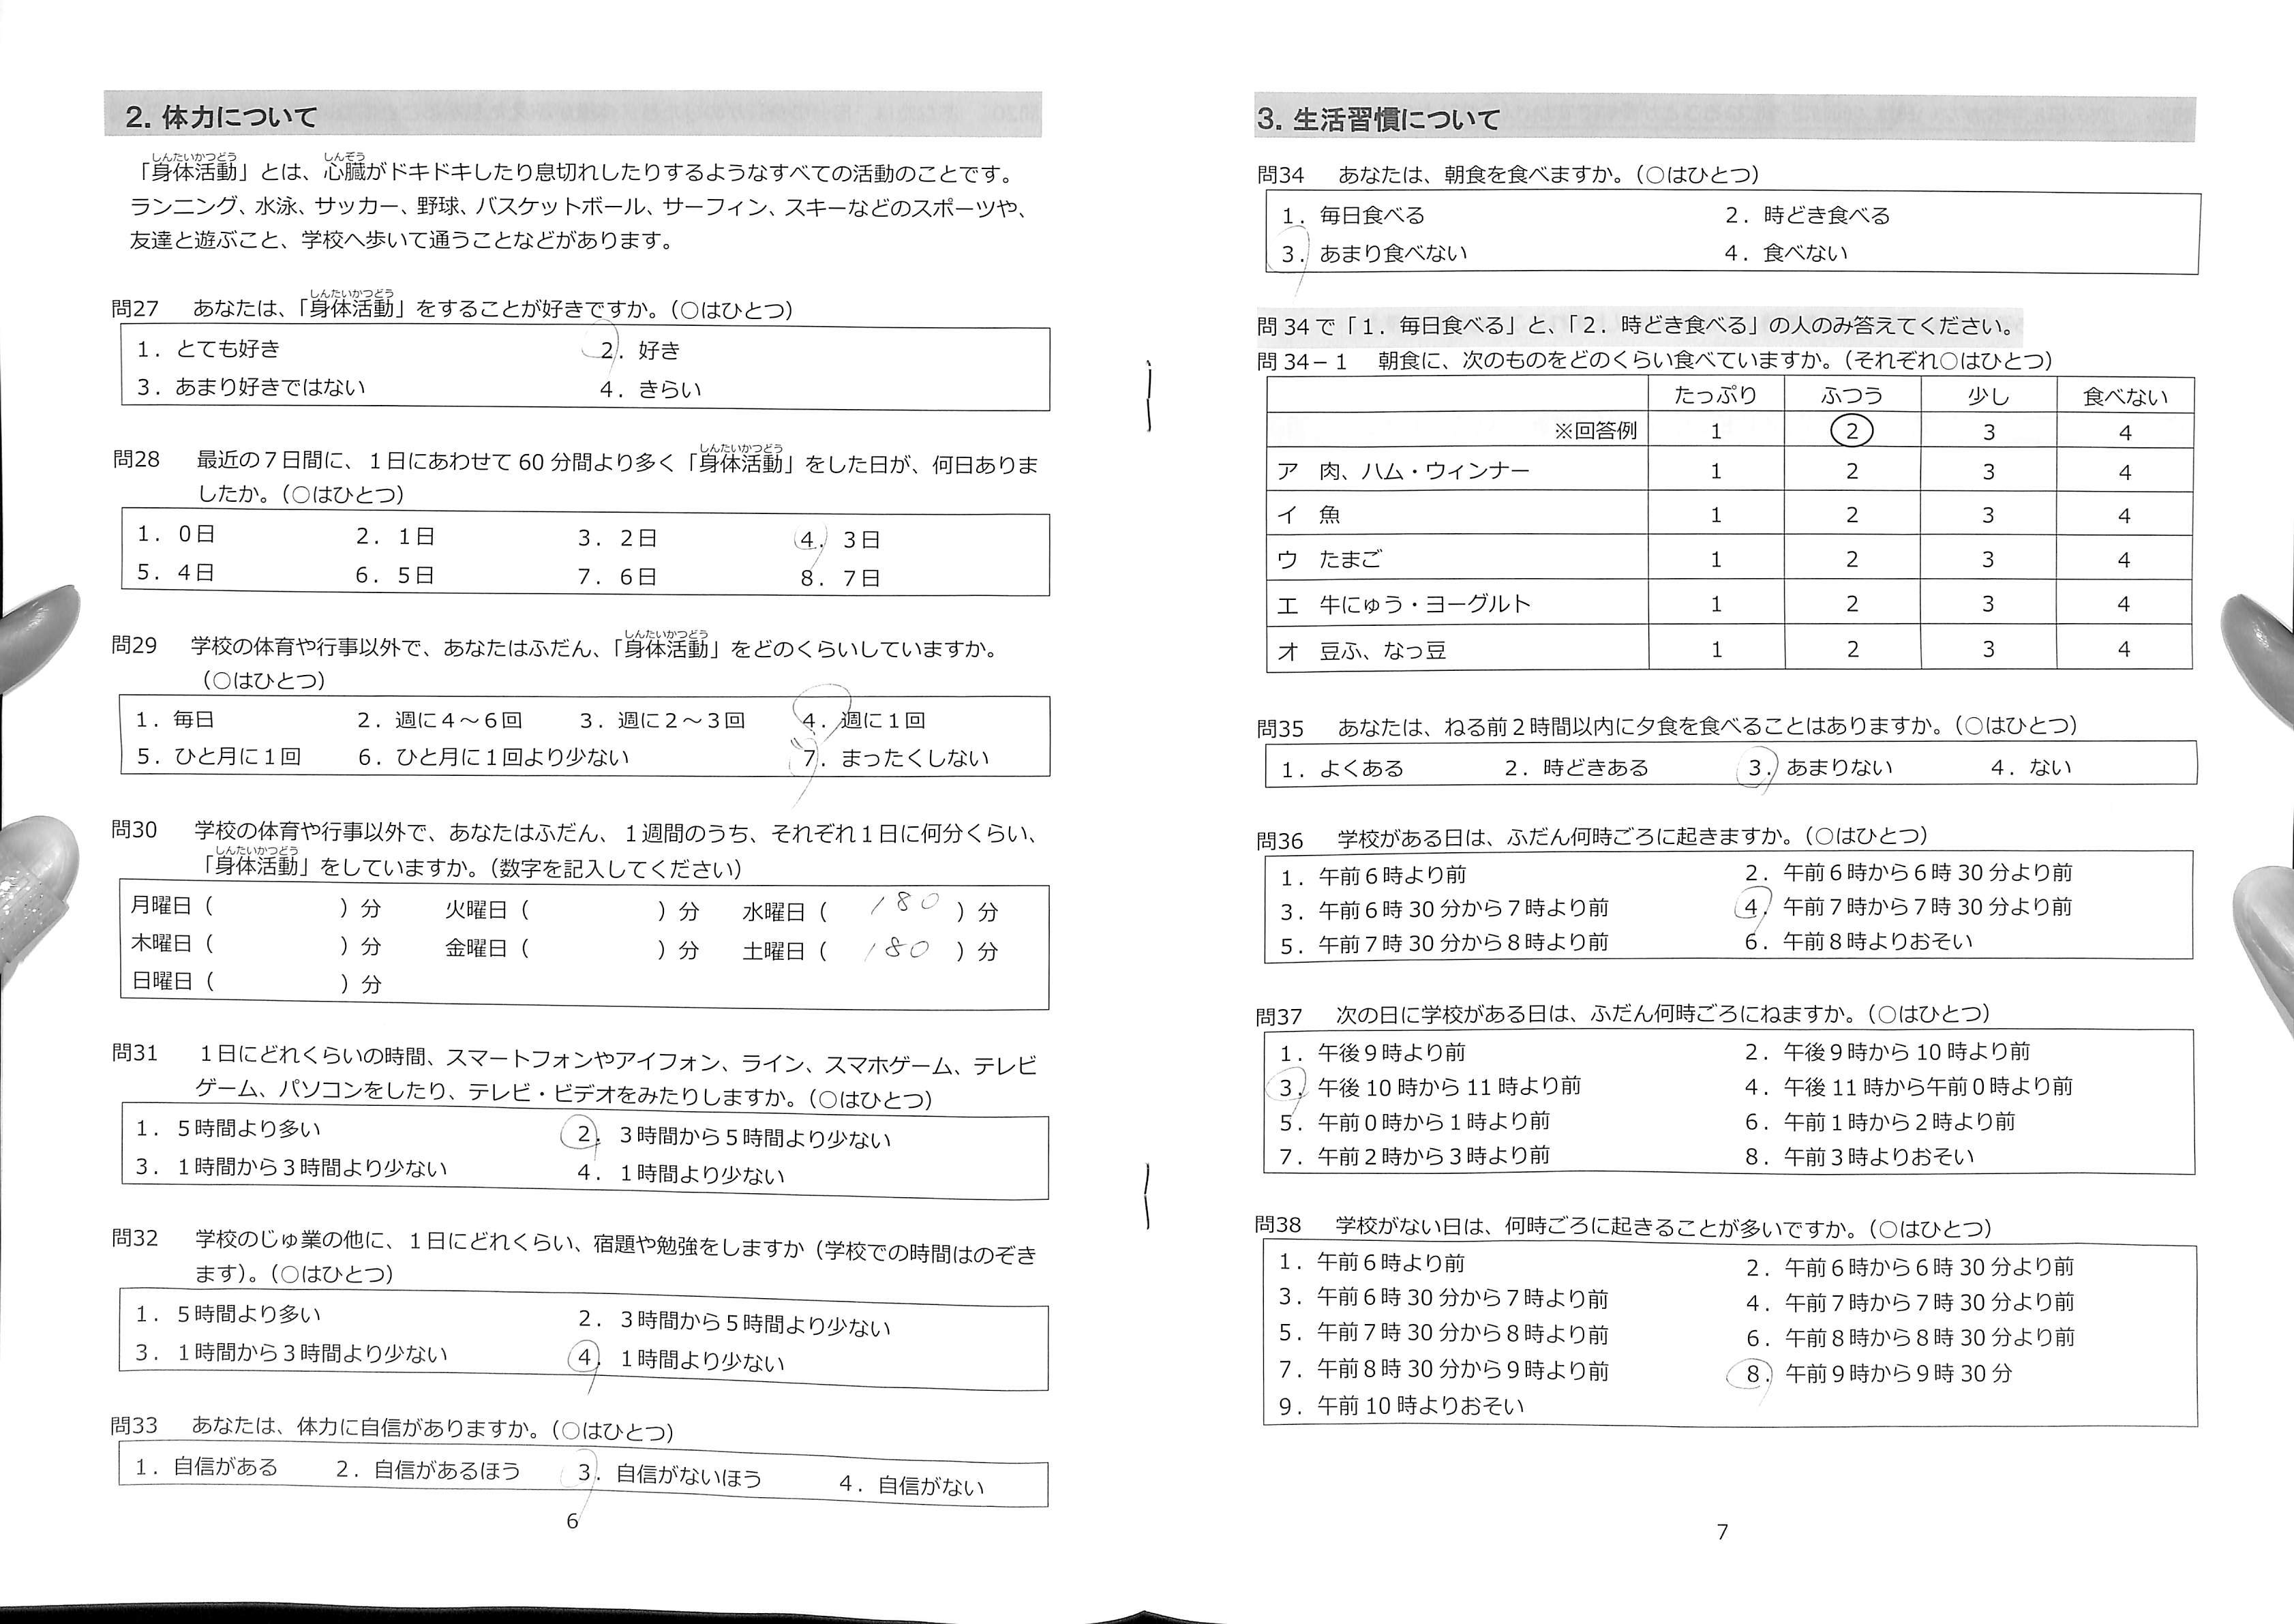 2. 体力について
「身体活動」とは、心臓がドキドキしたり息切れしたりするようなすべての活動のことです。
ランニング、水泳、サッカー、野球、バスケットボール、サーフィン、スキーなどのスポーツや、
友達と遊ぶこと、学校へ歩いて通うことなどがあります。
問27 あなたは、「身体活動」をすることが好きですか。（○はひとつ）
1．とても好き 2．好き
3．あまり好きではない 4．きらい
問28 最近の７日間に、１日にあわせて 60 分間より多く「身体活動」をした日が、何日ありま
したか。（○はひとつ）
1．０日 2．１日 3．２日 4．３日
5．４日 6．５日 7．６日 8．７日
問29 学校の体育や行事以外で、あなたはふだん、「身体活動」をどのくらいしていますか。
（○はひとつ）
1．毎日 2．週に４～６回 3．週に２～３回 4．週に１回
5．ひと月に１回 6．ひと月に１回より少ない 7．まったくしない
問30 学校の体育や行事以外で、あなたはふだん、１週間のうち、それぞれ１日に何分くらい、
「身体活動」をしていますか。（数字を記入してください）
月曜日（ ）分 火曜日（ ）分 水曜日（ 180 ）分
木曜日（ ）分 金曜日（ ）分 土曜日（ 180 ）分
日曜日（ ）分
問31 １日にどれくらいの時間、スマートフォンやアイフォン、ライン、スマホゲーム、テレビ
ゲーム、パソコンをしたり、テレビ・ビデオをみたりしますか。（○はひとつ）
1．５時間より多い 2．３時間から５時間より少ない
3．１時間から３時間より少ない 4．１時間より少ない
問32 学校のじゅ業の他に、１日にどれくらい、宿題や勉強をしますか（学校での時間はのぞき
ます）。（○はひとつ）
1．５時間より多い 2．３時間から５時間より少ない
3．１時間から３時間より少ない 4．１時間より少ない
問33 あなたは、体力に自信がありますか。（○はひとつ）
1．自信がある 2．自信があるほう 3．自信がないほう 4．自信がない
6
3. 生活習慣について
問34 あなたは、朝食を食べますか。（○はひとつ）
1．毎日食べる 2．時どき食べる
3．あまり食べない 4．食べない
問 34 で「１．毎日食べる」と、「２．時どき食べる」の人のみ答えてください。
問 34－１ 朝食に、次のものをどのくらい食べていますか。（それぞれ○はひとつ）
たっぷり ふつう 少し 食べない
※回答例 1 2 3 4
ア 肉、ハム・ウィンナー 1 2 3 4
イ 魚 1 2 3 4
ウ たまご 1 2 3 4
エ 牛にゅう・ヨーグルト 1 2 3 4
オ 豆ふ、なっ豆 1 2 3 4
問35 あなたは、ねる前２時間以内に夕食を食べることはありますか。（○はひとつ）
1．よくある 2．時どきある 3．あまりない 4．ない
問36 学校がある日は、ふだん何時ごろに起きますか。（○はひとつ）
1．午前６時より前 2．午前６時から６時 30 分より前
3．午前６時 30 分から７時より前 4．午前７時から７時 30 分より前
5．午前７時 30 分から８時より前 6．午前８時よりおそい
問37 次の日に学校がある日は、ふだん何時ごろにねますか。（○はひとつ）
1．午後９時より前 2．午後９時から 10 時より前
3．午後 10 時から 11 時より前 4．午後 11 時から午前０時より前
5．午前０時から１時より前 6．午前１時から２時より前
7．午前２時から３時より前 8．午前３時よりおそい
問38 学校がない日は、何時ごろに起きることが多いですか。（○はひとつ）
1．午前６時より前 2．午前６時から６時 30 分より前
3．午前６時 30 分から７時より前 4．午前７時から７時 30 分より前
5．午前７時 30 分から８時より前 6．午前８時から８時 30 分より前
7．午前８時 30 分から９時より前 8．午前９時から９時 30 分
9．午前 10 時よりおそい
7